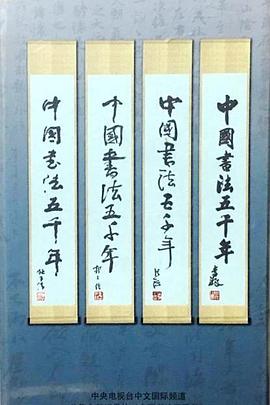 中國書法五千年
中國書法五千年
中國書法五千年
中国書法五千年
中央电视台中文国际频道